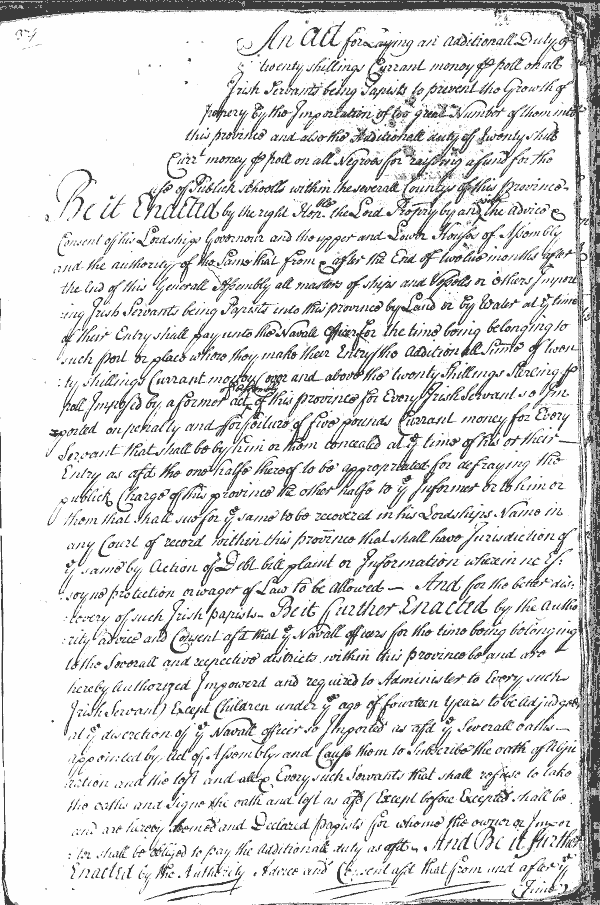 An Act for Laying an Additionall Duty of
twenty shillings Currant money p poll on all
Irish Servants being Papists to prevent the Growth of
popery by the Importation of too great Number of them into
this province and also the Additionall duty of twenty shill
Curr money p poll on all Negroes for raysing a fund for the
use of Publick Schooles within the severall Countys of this Province
Be it Enacted by the right Hon the Lord Propry by and with the Advice &
Consent of his Lordships Governour and the upper and Lower Houses of Assembly
and the authority of the Same that from & after the End of twelve months after
the End of this Generall Assembly all masters of ships and Vessells or others Import
ing Irish Servants being Papists into this province by Land or by Water at ye time
of their Entry shall pay unto the Navall officer for the time being belonging to
such port or place where they make their Entry the Additionall Sume of twen
ty shillings Currant money over and above the twenty Shillings Sterling p
poll Imposed by a former act of this province for Every Irish Servant so Im
ported on penalty and forfeiture of five pounds Currant money for Every
Servant that shall be by him or them concealed at ye time of his or their
Entry as afd the one halfe thereof to be appropriated for defraying the
publick Charge of this province the other halfe to ye Informer or to him or
them that shall sue for ye same to be recovered in his Lordships Name in
any Court of record within this province that shall have Jurisdiction of
ye same by Action of Debt bill plaint or Information wherein no Es
soyne protection or wager of Law to be Allowed And for the better dis
covery of such Irish Papists Be it further Enacted by the Autho
rity advice and Consent afd that ye Navall officers for the time being belonging
to the Severall and respective districts within this province be and are
hereby Authorized Impowerd and required to Administer to Every such
Irish Servant (Except Children under ye age of fourteen Years to be Adjudged
at ye discretion of ye Navall officer so Imported as afd ye Severall oaths
appointed by Act of Assembly and Cause them to Subscribe the oath of Abju
ration and the test and all & Every such Servants that shall refuse to take
the oaths and Signe the oath and test as afd (Except before Excepted shall be
and are hereby deemed and Declared papists for whome the owner or Impor
ter shall be obliged to pay the Additionall duty as afd And Be it further
Enacted by the Authority Advice and Consent afd that from and after ye
time